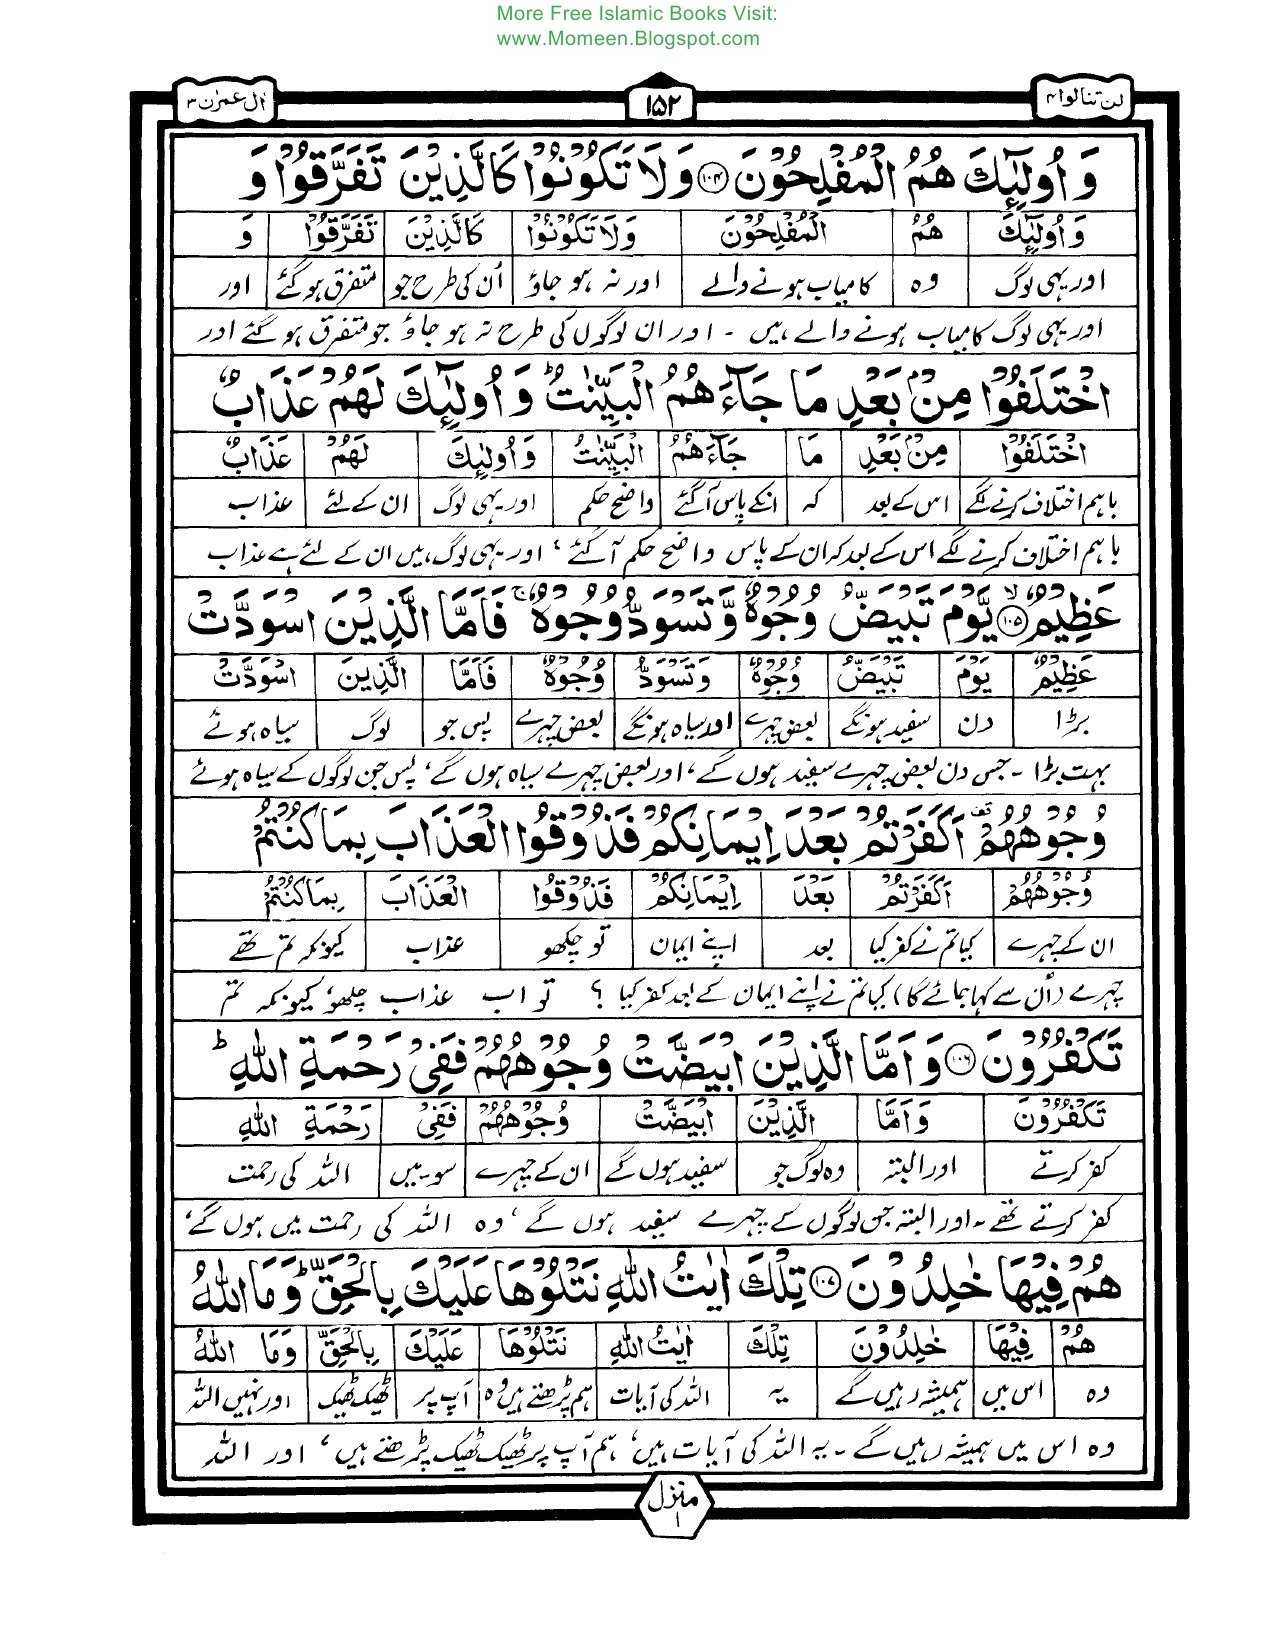 More Free Islamic Books Visit:
www.Momeen.Blogspot.com
لن تنالوا ۴ ۱۵۲ اٰل عمرٰن ۳
وَ اُولٰٓئِكَ هُمُ الْمُفْلِحُوْنَ ۱۰۴ وَلَا تَكُوْنُوْا كَالَّذِيْنَ تَفَرَّقُوْا وَ
وَ اُولٰٓئِكَ هُمُ الْمُفْلِحُوْنَ وَلَا تَكُوْنُوْا كَالَّذِيْنَ تَفَرَّقُوْا وَ
اور یہی لوگ وہ کامیاب ہونے والے اور نہ ہو جاؤ اُن کی طرح جو متفرق ہو گئے اور
اور یہی لوگ کامیاب ہونے والے ہیں ۔ اور ان لوگوں کی طرح نہ ہو جاؤ جو متفرق ہو گئے اور
اخْتَلَفُوْا مِنْۢ بَعْدِ مَا جَآءَهُمُ الْبَيِّنٰتُ ؕ وَ اُولٰٓئِكَ لَهُمْ عَذَابٌ
اخْتَلَفُوْا مِنْۢ بَعْدِ مَا جَآءَهُمُ الْبَيِّنٰتُ وَ اُولٰٓئِكَ لَهُمْ عَذَابٌ
باہم اختلاف کرنے لگے اس کے بعد کہ انکے پاس آگئے واضح حکم اور یہی لوگ ان کے لئے عذاب
باہم اختلاف کرنے لگے اس کے بعد کہ ان کے پاس واضح حکم آگئے ، اور یہی لوگ ہیں ان کے لئے ہے عذاب
عَظِيْمٌ ۱۰۵ ۙ يَّوْمَ تَبْيَضُّ وُجُوْهٌ وَّ تَسْوَدُّ وُجُوْهٌ ۚ فَاَمَّا الَّذِيْنَ اسْوَدَّتْ
عَظِيْمٌ يَوْمَ تَبْيَضُّ وُجُوْهٌ وَ تَسْوَدُّ وُجُوْهٌ فَاَمَّا الَّذِيْنَ اسْوَدَّتْ
بڑا دن سفید ہونگے بعض چہرے اور سیاہ ہونگے بعض چہرے پس جو لوگ سیاہ ہوئے
بہت بڑا ۔ جس دن بعض چہرے سفید ہوں گے ، اور بعض چہرے سیاہ ہوں گے ، پس جن لوگوں کے سیاہ ہوئے
وُجُوْهُهُمْ ۟ اَكَفَرْتُمْ بَعْدَ اِيْمَانِكُمْ فَذُوْقُوا الْعَذَابَ بِمَا كُنْتُمْ
وُجُوْهُهُمْ اَكَفَرْتُمْ بَعْدَ اِيْمَانِكُمْ فَذُوْقُوا الْعَذَابَ بِمَا كُنْتُمْ
ان کے چہرے کیا تم نے کفر کیا بعد اپنے ایمان تو چکھو عذاب کیونکہ تم تھے
چہرے (اُن سے کہا جائے گا) کیا تم نے اپنے ایمان کے بعد کفر کیا ؟ تو اب عذاب چکھو ، کیونکہ تم
تَكْفُرُوْنَ ۱۰۶ وَ اَمَّا الَّذِيْنَ ابْيَضَّتْ وُجُوْهُهُمْ فَفِيْ رَحْمَةِ اللّٰهِ ؕ
تَكْفُرُوْنَ وَ اَمَّا الَّذِيْنَ ابْيَضَّتْ وُجُوْهُهُمْ فَفِيْ رَحْمَةِ اللّٰهِ
کفر کرتے اور البتہ وہ لوگ جو سفید ہوں گے ان کے چہرے سو میں اللہ کی رحمت
کفر کرتے تھے ۔ اور البتہ جن لوگوں کے چہرے سفید ہوں گے ، وہ اللہ کی رحمت میں ہوں گے ،
هُمْ فِيْهَا خٰلِدُوْنَ ۱۰۷ تِلْكَ اٰيٰتُ اللّٰهِ نَتْلُوْهَا عَلَيْكَ بِالْحَقِّ ؕ وَمَا اللّٰهُ
هُمْ فِيْهَا خٰلِدُوْنَ تِلْكَ اٰيٰتُ اللّٰهِ نَتْلُوْهَا عَلَيْكَ بِالْحَقِّ وَمَا اللّٰهُ
وہ اس میں ہمیشہ رہیں گے یہ اللہ کی آیات ہم پڑھتے ہیں وہ آپ پر ٹھیک ٹھیک اور نہیں اللہ
وہ اس میں ہمیشہ رہیں گے ۔ یہ اللہ کی آیات ہیں ، ہم آپ پر ٹھیک ٹھیک پڑھتے ہیں ، اور اللہ
منزل ۱